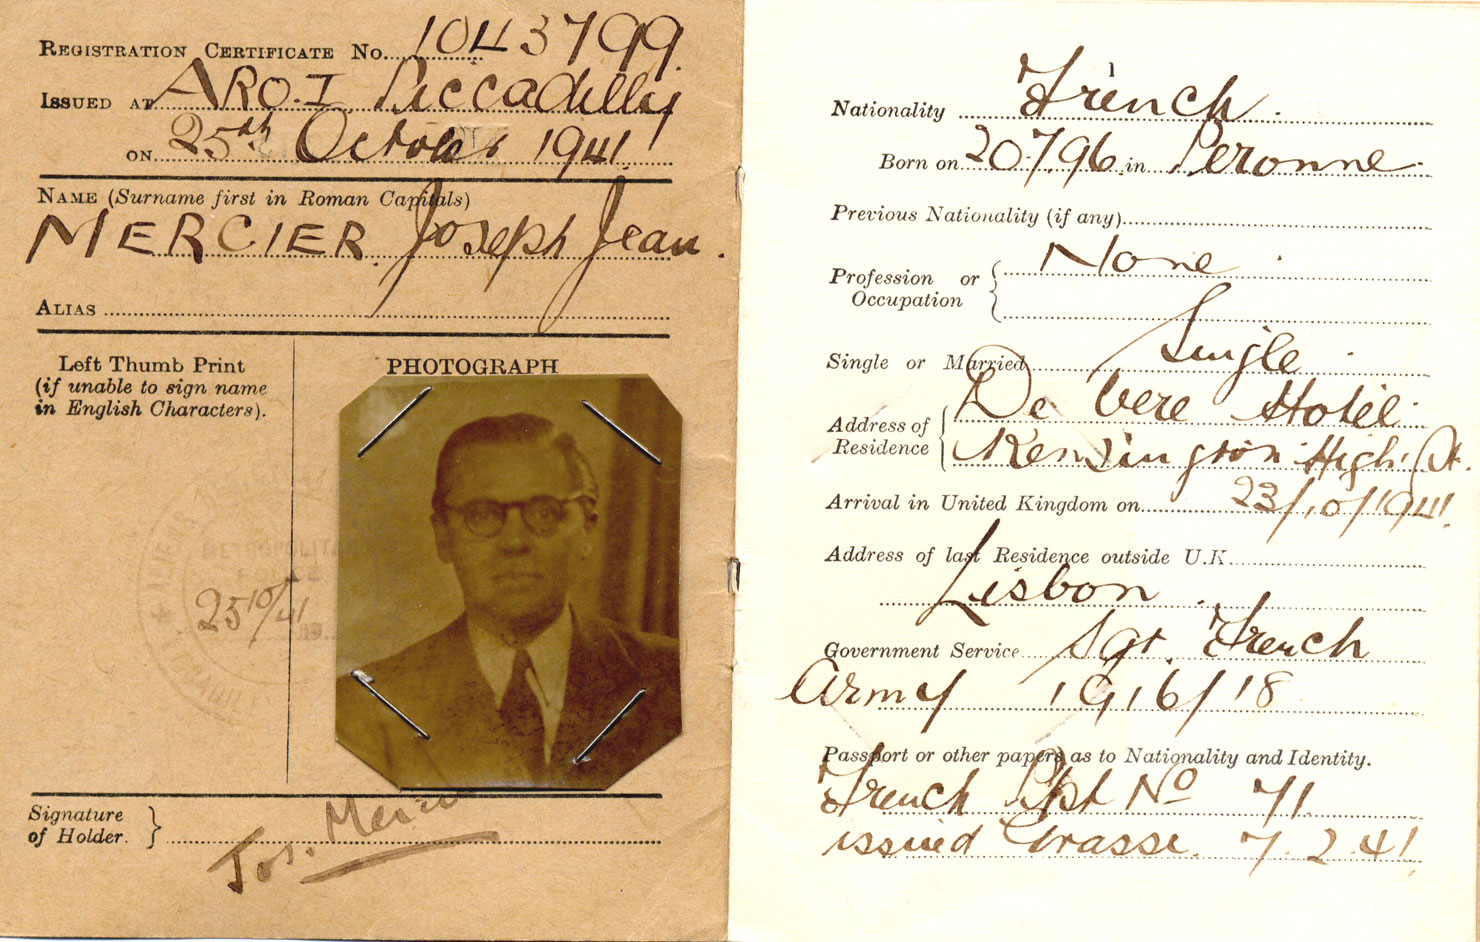 REGISTRATION CERTIFICATE No. 1043799
ISSUED AT ARO.I Piccadilly
ON 25th October 1941
NAME (Surname first in Roman Capitals)
MERCIER. Joseph Jean.
ALIAS
Left Thumb Print
(if unable to sign name
in English Characters).
PHOTOGRAPH
METROPOLITAN
25/10/41
Signature
of Holder.
Jos. Mercier
Nationality French.
Born on 20.7.96 in Peronne.
Previous Nationality (if any)
Profession or
Occupation
None
Single or Married Single
Address of
Residence
De Vere Hotel.
Kensington High. St.
Arrival in United Kingdom on 23/10/1941
Address of last Residence outside U.K.
Lisbon.
Government Service Sgt. French
Army 1916/18
Passport or other papers as to Nationality and Identity.
French Ppt No 71
issued Grasse. 7.2.41